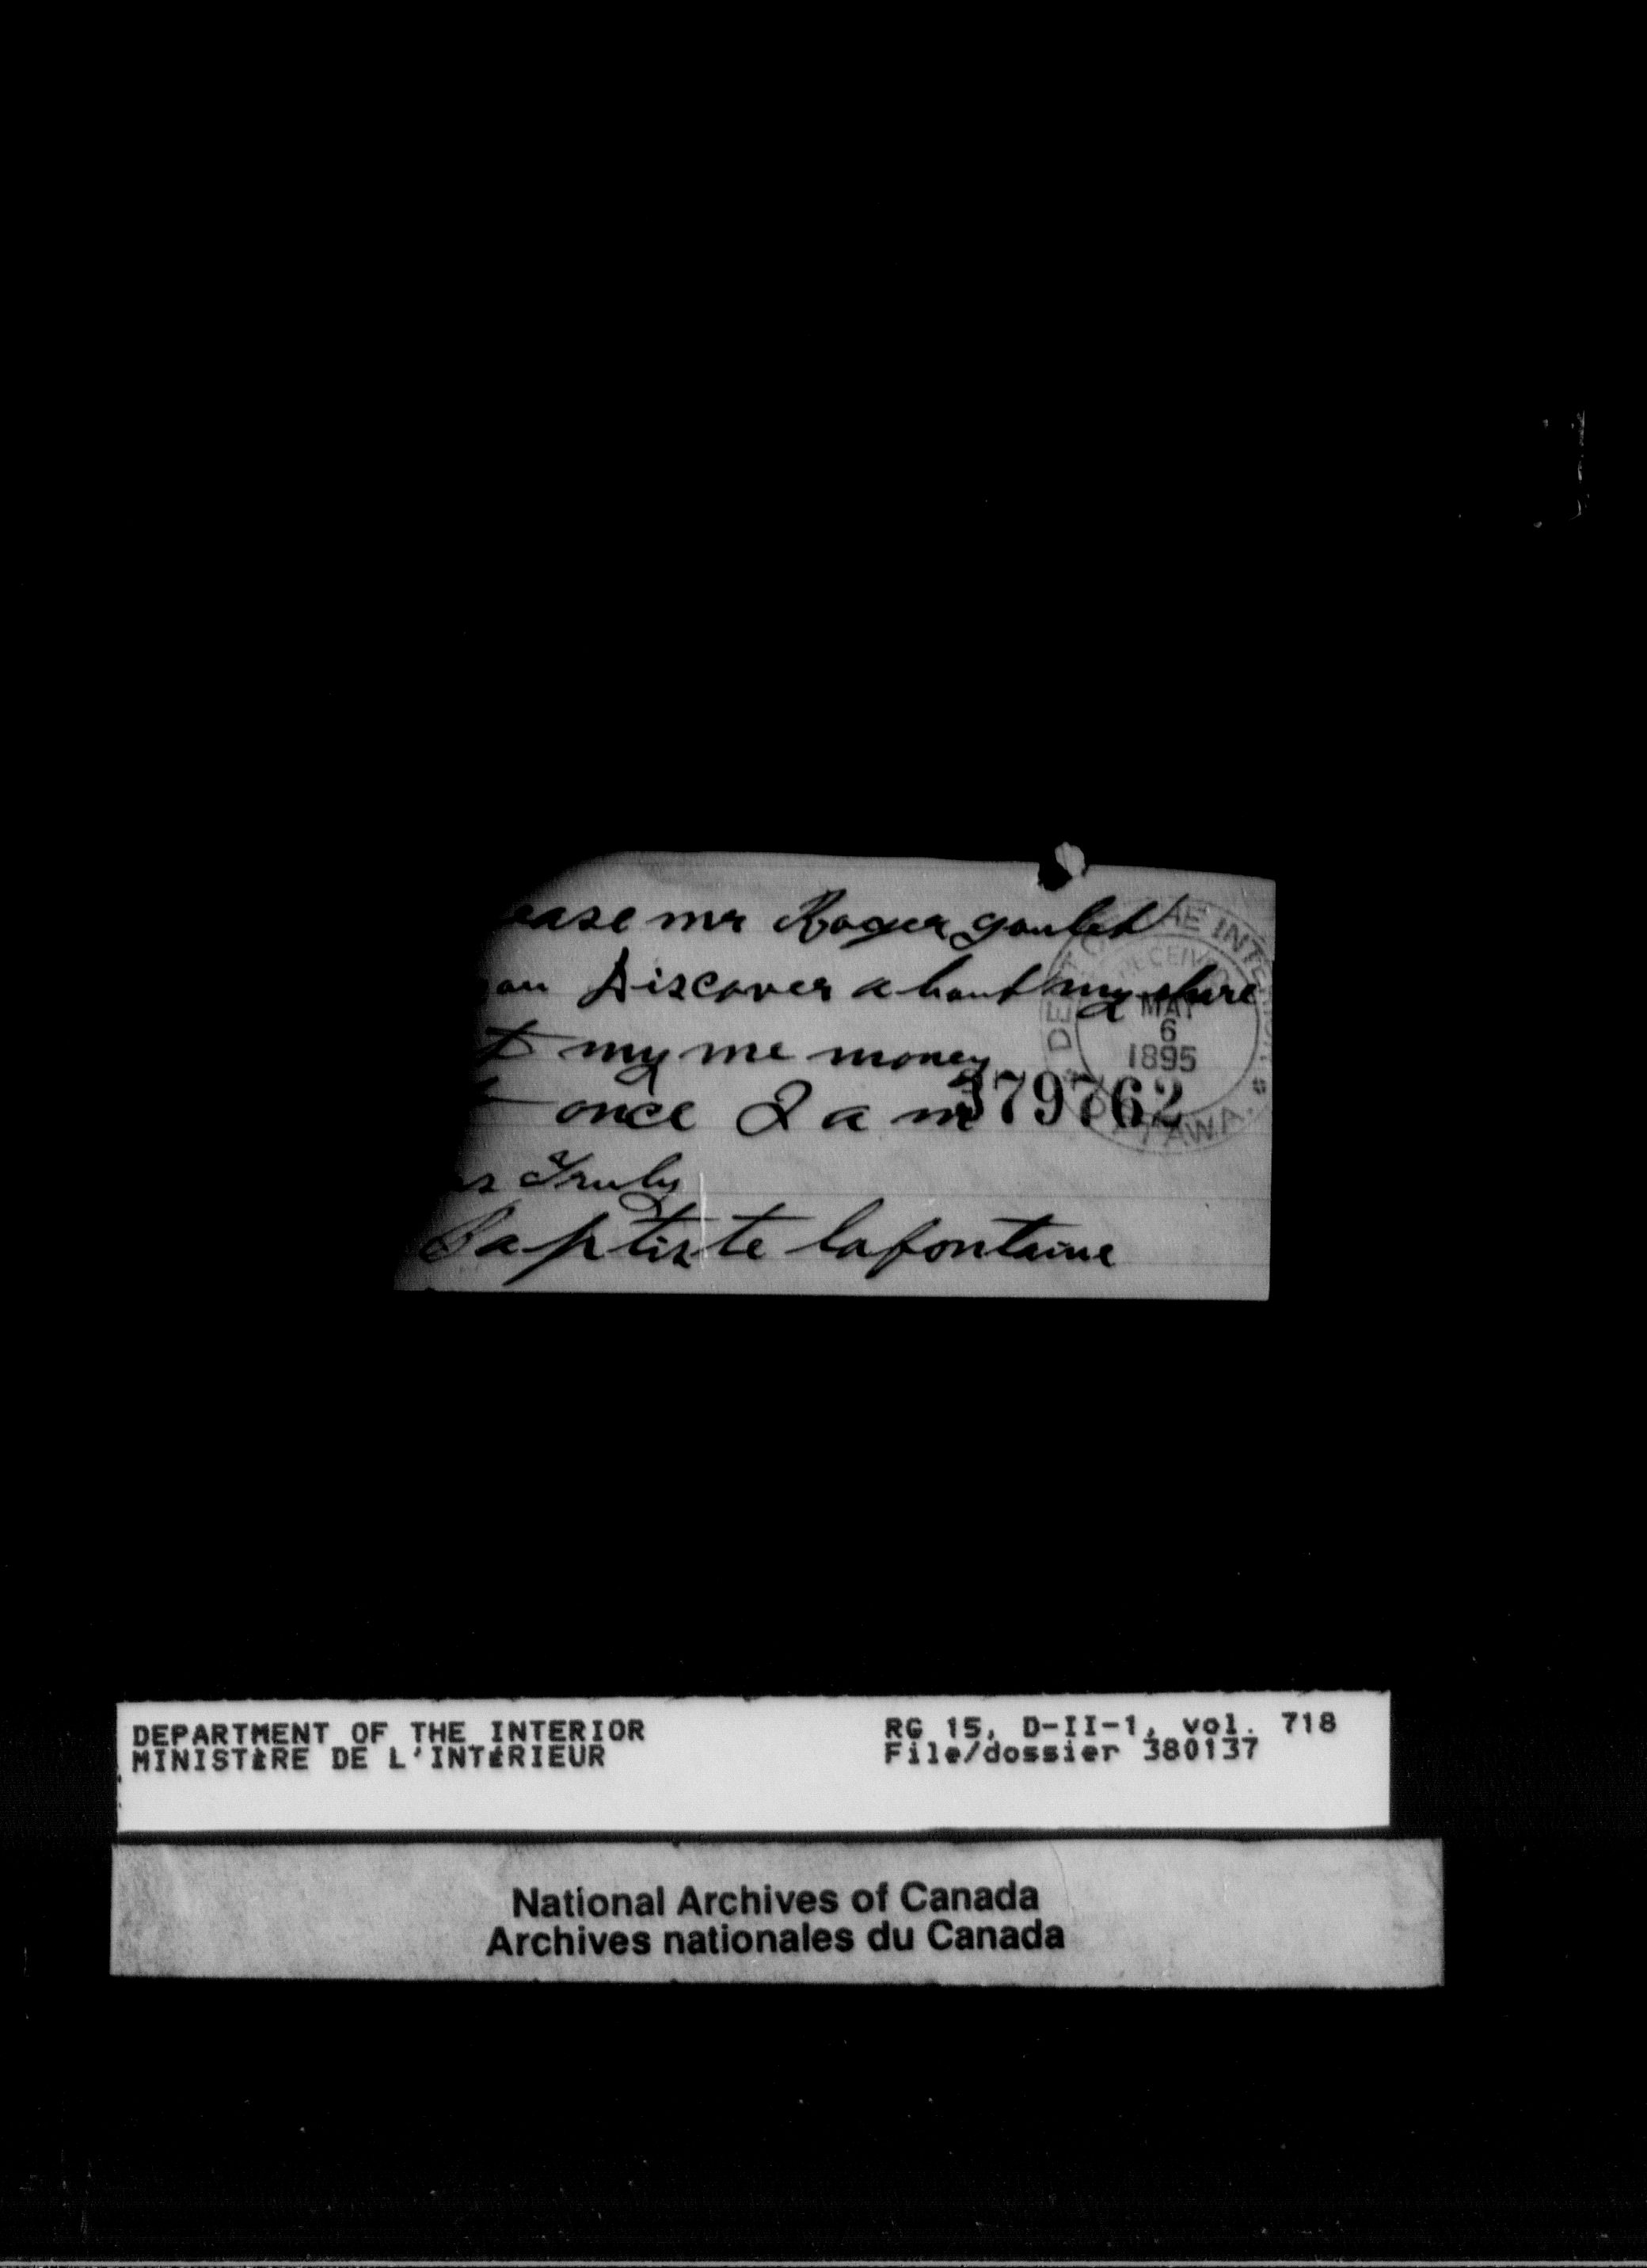 ease mr Roger goulet
ou Discover a bout my shure
t my me money
once I a m
379762
rs Truly
Baptiste lafontaine
DEPT OF THE INTERIOR
RECEIVED
MAY
6
1895
OTTAWA.
DEPARTMENT OF THE INTERIOR
MINISTÈRE DE L'INTÉRIEUR
RG 15, D-II-1, vol. 718
File/dossier 380137
National Archives of Canada
Archives nationales du Canada